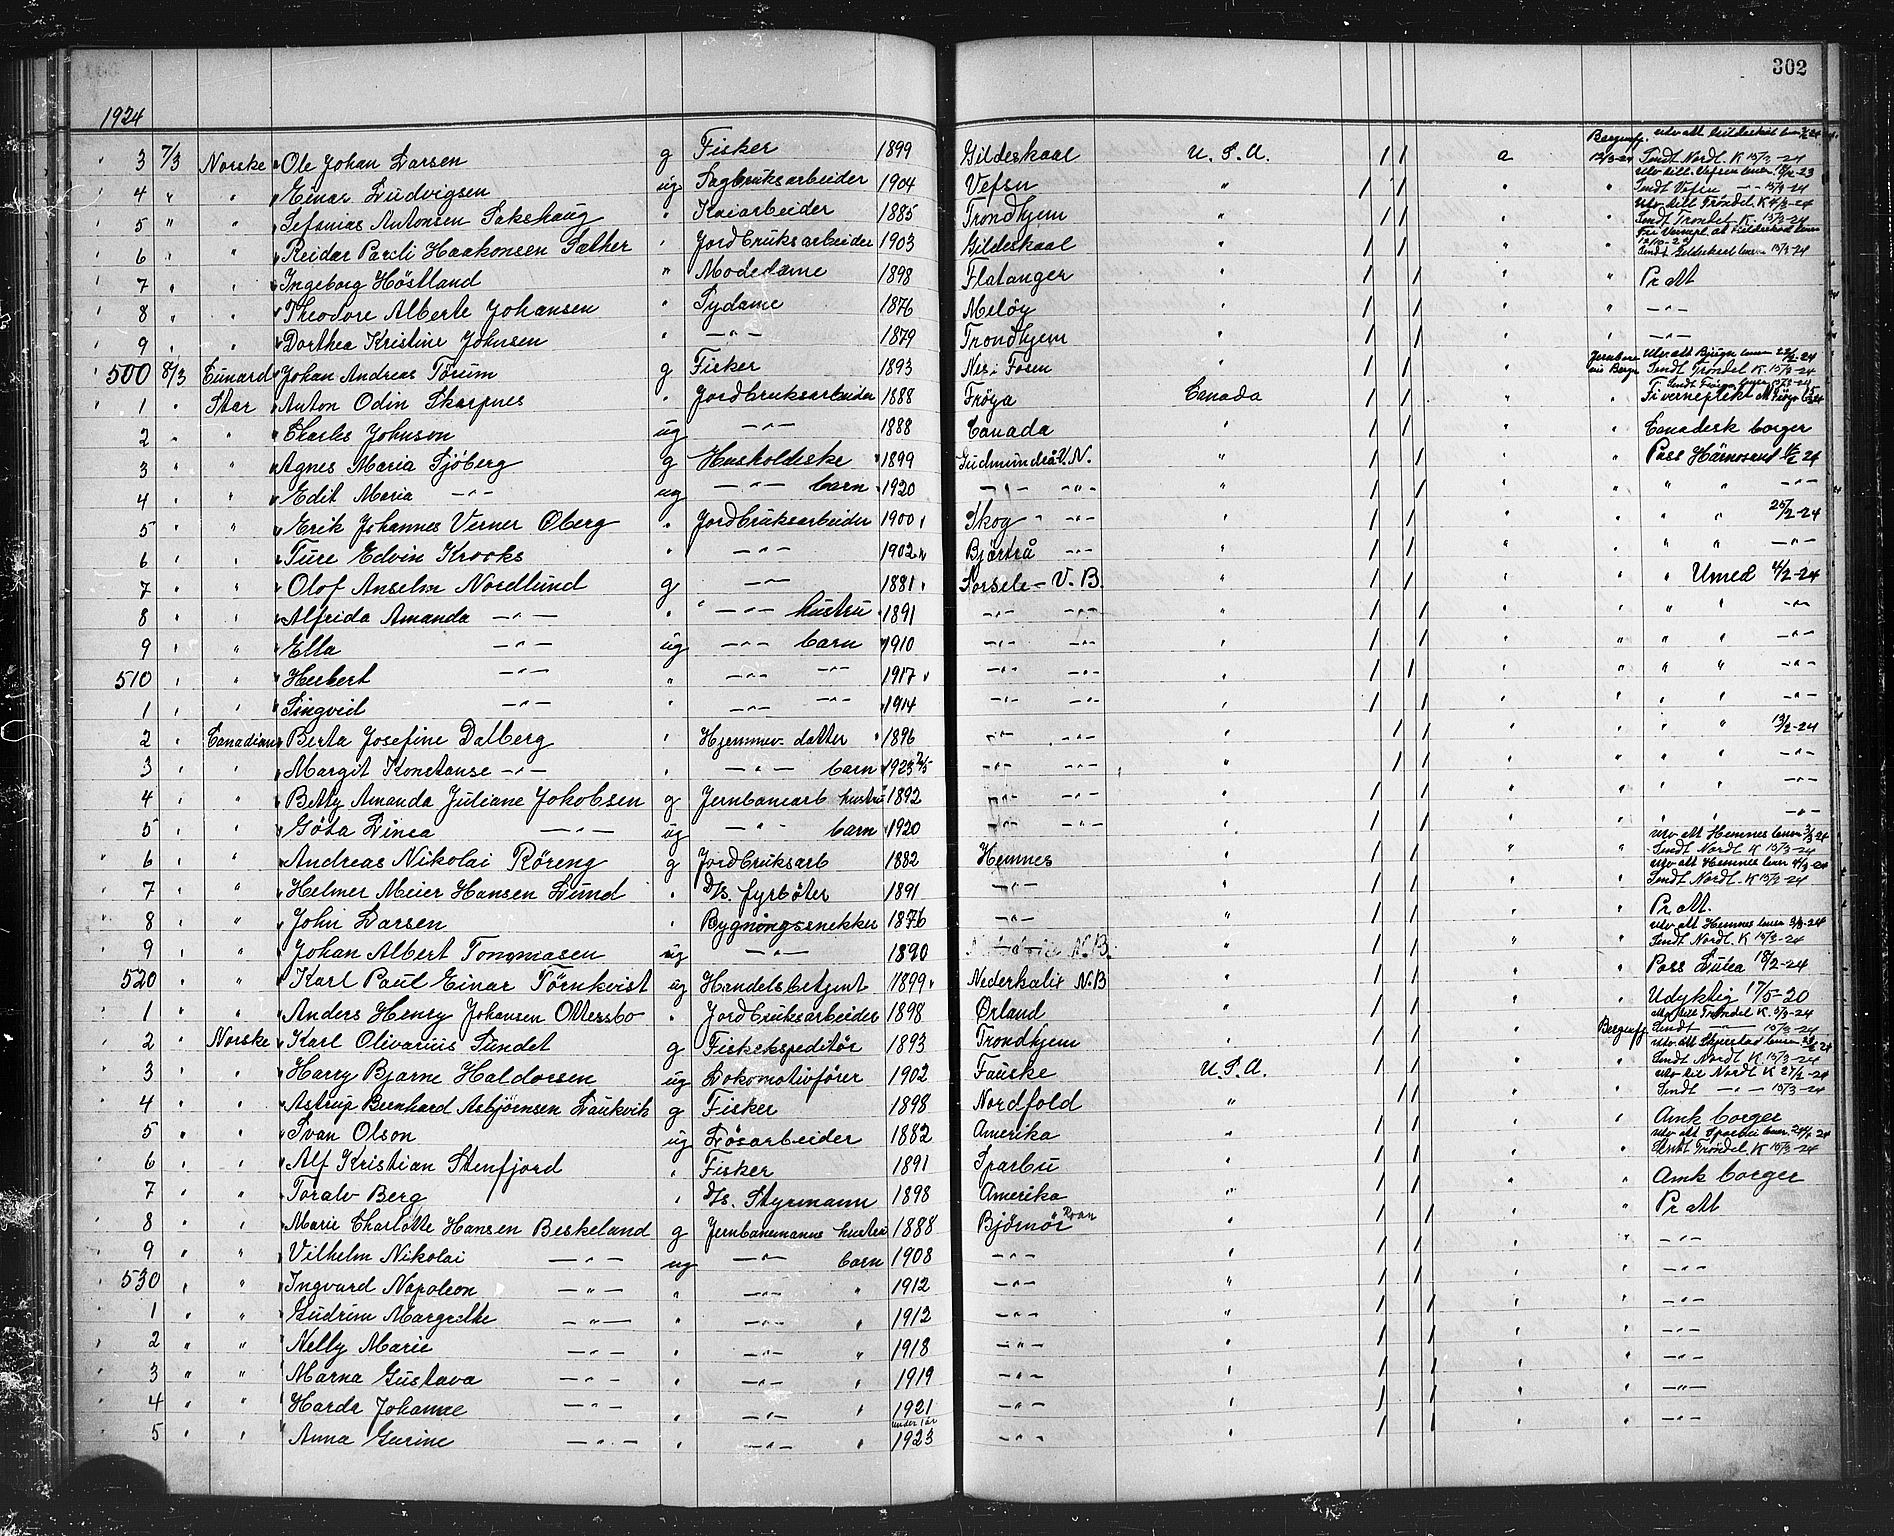 302
1924
3 7/3 Norske " Ole Johan Larsen g Fisker 1899 Gildeskaal U.S.A. / / a Bergensf. 12/3-24 Sendt Nordl. K 15/3-24
4 " " " Einar Ludvigsen ug Sagbruksarbeider 1904 Vefsn " / / " " Sendt Vefsn - - 15/3-24
5 " " " Sefanias Antonsen Sakshaug " Kaiarbeider 1885 Trondhjem " / / " " Sendt Trøndel. K. 15/3-24
6 " " " Reidar Pareli Haakonsen Sæther " Jordbruksarbeider 1903 Gildeskaal " / / " " Sendt Gildeskaal lensm 15/3-24
7 " " " Ingeborg Høstland " Modedame 1898 Flatanger " / / " " Pr att
8 " " " Theodore Alberte Johansen " Sydame 1876 Meløy " / / " " -"-
9 " " " Dorthea Kristine Johnsen " -"- 1879 Trondhjem " / / " " -"-
500 8/3 Cunard " Johan Andreas Tørum g Fisker 1893 Nes i Fosen " / / " Jernbane via Bergen Sendt Trøndel K. 15/3-24
1 " Star " Anton Odin Skarpnes " Jordbruksarbeider 1888 Frøya Canada / / " "
2 " " " Charles Johnson ug -"- 1888 Canada " / / " " Canadesk borger
3 " " " Agnes Maria Sjöberg g Husholderske 1899 Gudmundrå V.N. " / / " " Pass Härnösand
4 " " " Edit Maria -"- ug -"- barn 1920 -"- -"- " / / " " " " -"-
5 " " " Erik Johannes Verner Öberg " Jordbruksarbeider 1900 Skog " -"- " / / " " " " 25/2-24
6 " " " Ture Edvin Krooks " -"- 1902 Bjärtrå -"- " / / " " " " -"-
7 " " " Olof Anselm Nordlund g -"- 1881 Sorsele - V.B. " / / " " " Umeå 4/2-24
8 " " " Alfrida Amanda -"- " -"- hustru 1891 -"- -"- " / / " " " " -"-
9 " " " Ella -"- ug -"- barn 1910 -"- -"- " / / " " " " -"-
510 " " " Herbert -"- " -"- -"- 1917 -"- -"- " / / " " " " -"-
1 " " " Singveid -"- " -"- -"- 1914 -"- -"- " / / " " " " -"-
2 " Canadian " Berta Josefine Dalberg " Hjemmev. datter 1896 -"- -"- " / / " " " " 13/2-24
3 " " " Margit Konstanse -"- " -"- barn 1923 2/5 -"- -"- " / / " " " " -"-
4 " " " Betty Amanda Juliane Jokobsen g Jernbanearb hustru 1892 -"- -"- " / / " " " " -"-
5 " " " Göta Linea -"- ug -"- barn 1920 -"- -"- " / / " " " " -"-
6 " " " Andreas Nikolai Røreng g Jordbruksarb 1882 Hemnes " / / " " Sendt Nordl K 15/3-24
7 " " " Helmer Meier Hansen Lund " D/s. fyrbøter 1891 -"- " / / " " Sendt Nordl. K 15/3-24
8 " " " John Larsen " Bygningssnekker 1876 -"- " / / " " Pr att.
9 " " " Johan Albert Tommasen ug -"- 1890 N.B. " / / " " Sendt Nordl. K 15/3-24
520 " " " Karl Paul Einar Törnkvist ug Handelsbetjent 1899 Nederkalix N.B " / / " " Pass Luleå 18/2-24
1 " " " Anders Henry Johansen Ottersbo " Jordbruksarbeider 1898 Ørland " / / " " Udyktig 17/5-20
2 " Norske " Karl Olivarius Sundet g Fiskekspeditør 1893 Trondhjem " / / " Bergensf Sendt -"- 15/3-24
3 " " " Harry Bjarne Haldorsen ug Lokomotivfører 1902 Fauske U.S.A. / / " " Sendt Nordl. K 15/3-24
4 " " " Astrup Bernhard Asbjørnsen Laukvik g Fisker 1898 Nordfold " / / " Sendt -"- 15/3-24
5 " " " Ivan Olson ug Løsarbeider 1882 Amerika " / / " " Amk borger
6 " " " Alf Kristian Stenfjord " Fisker 1891 Sparbu " / / " Sendt Trøndel. K 15/3-24
7 " " " Toralv Berg " D/s. Styrmann 1898 Amerika " / / " " Amk borger
8 " " " Marie Charlotte Hansen Beskeland g Jernbanemanns hustru 1888 Bjørnør Roan " / / " " Pr att
9 " " " Vilhelm Nikolai -"- ug -"- barn 1908 -"- " / / " " -"-
530 " " " Ingvard Napoleon -"- " -"- " 1912 -"- " / / " " -"-
1 " " " Gudrun Margrethe -"- " -"- " 1912 -"- " / / " " -"-
2 " " " Nelly Marie -"- " -"- " 1918 -"- " / / " " -"-
3 " " " Marna Gustava -"- " -"- " 1919 -"- " / / " " -"-
4 " " " Harda Johanne -"- " -"- " 1921 -"- " / / " " -"-
5 " " " Anna Gurine -"- " -"- " under 1 år 1923 -"- " / / " " -"-